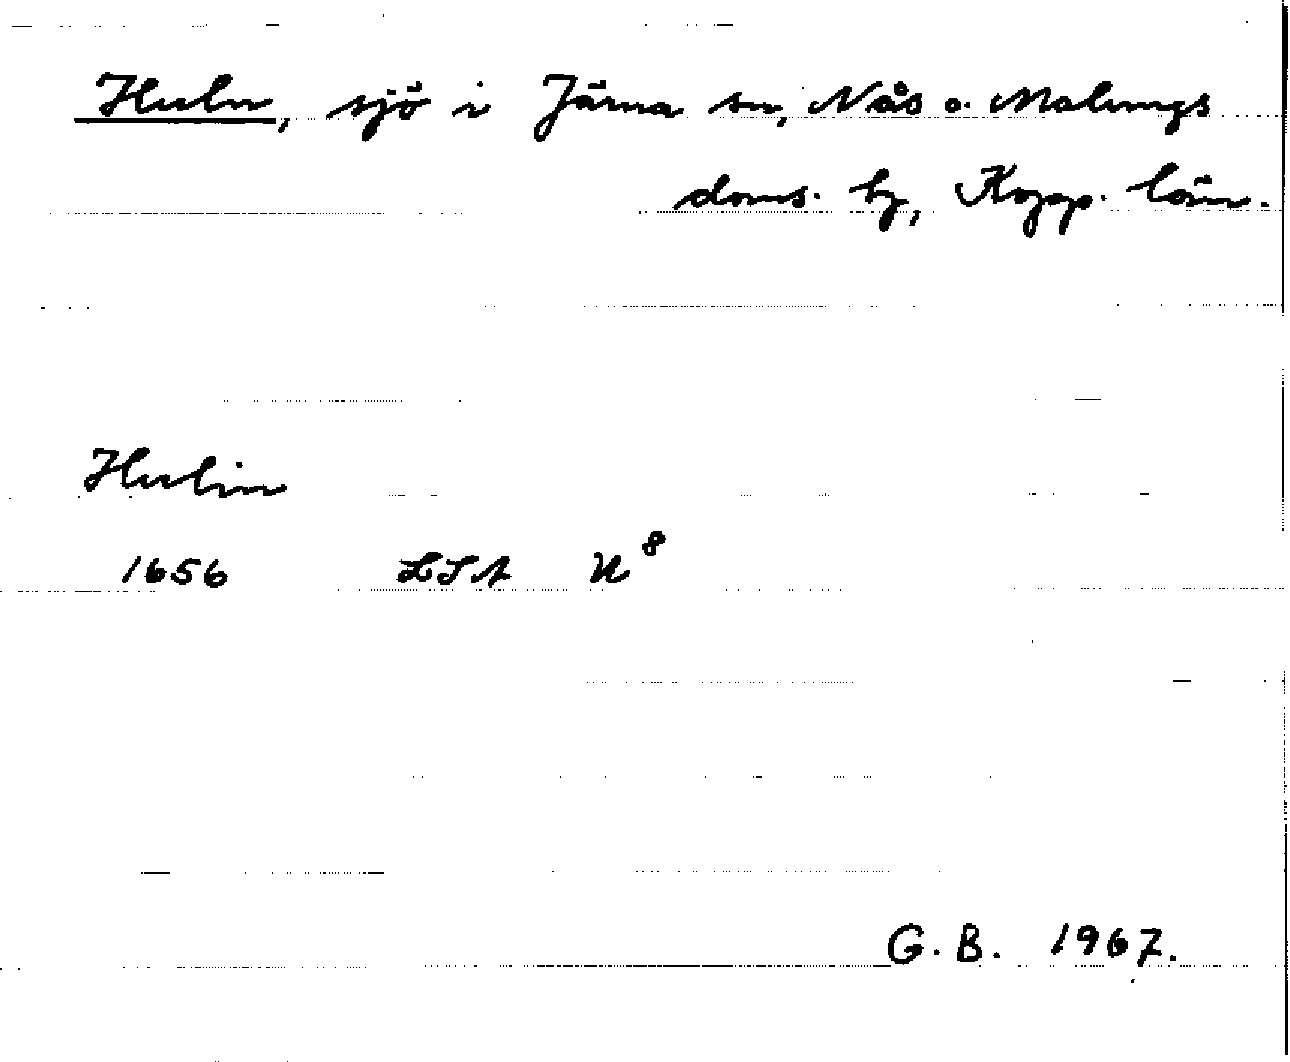 Huln, sjö i Järna sn, Nås o. Malungs
doms. by, Kopp. län.
Hulin
1656 LSA U⁸
G.B. 1967.